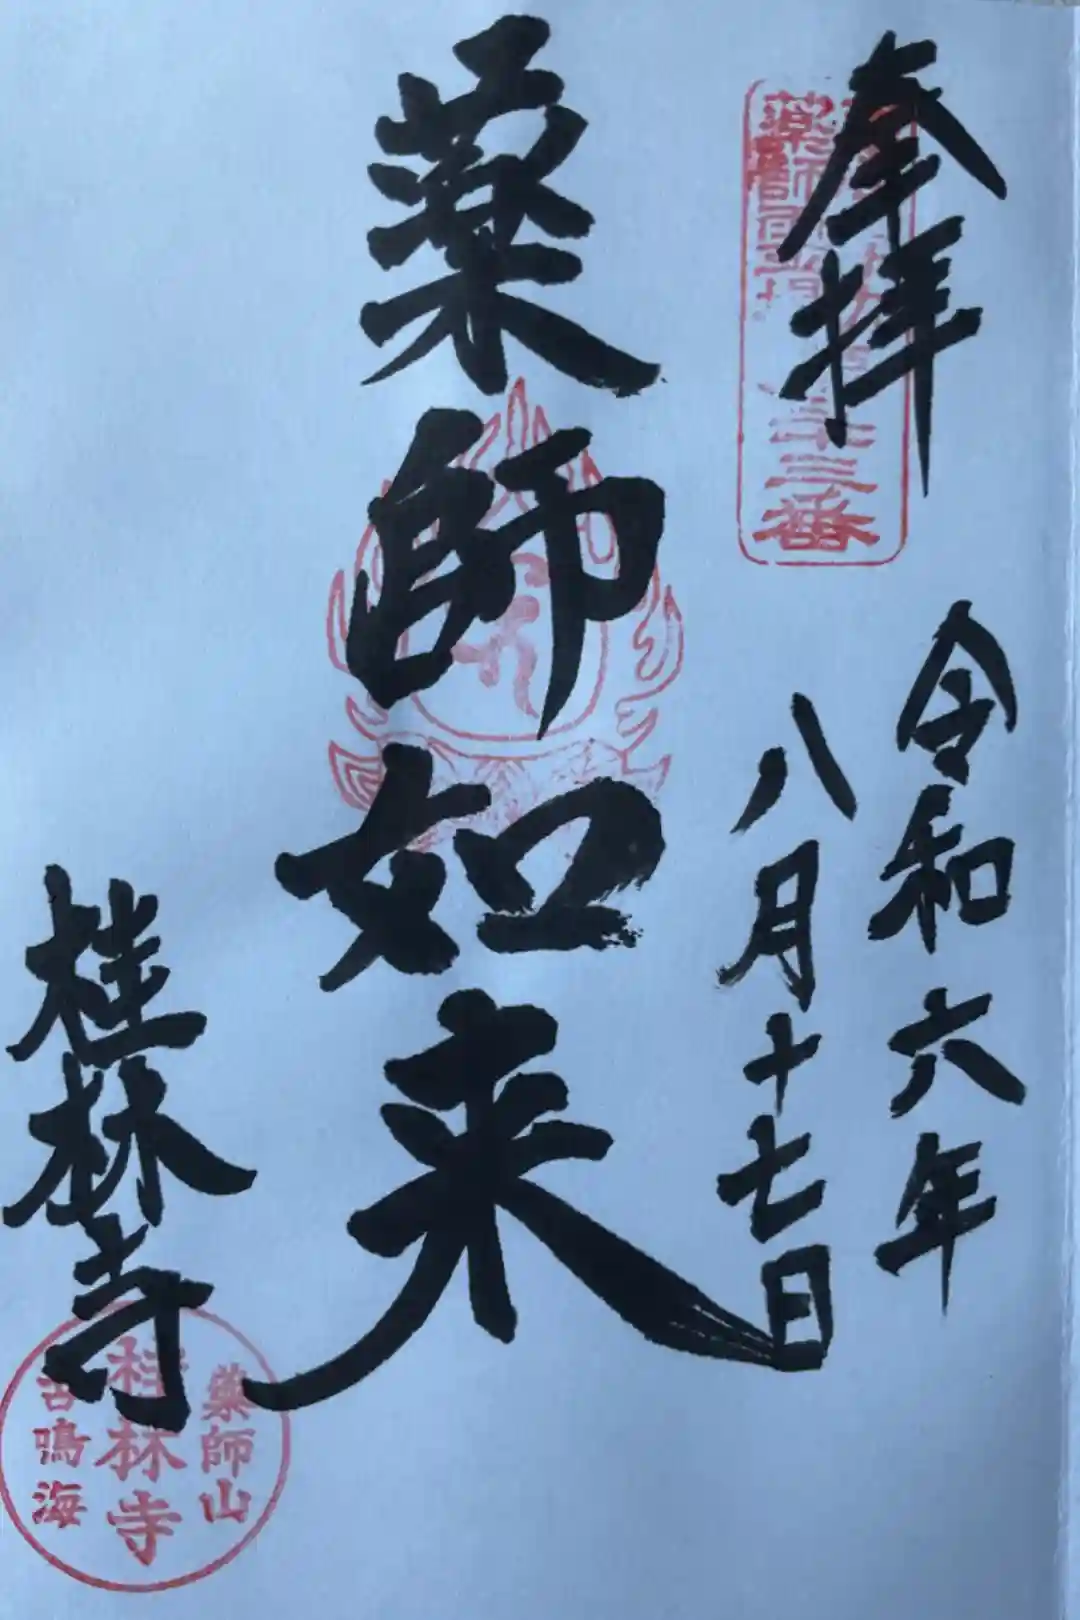 奉拝
薬師霊場
三番
令和六年
八月十七日
薬師如来
桂林寺
薬師山
桂林寺
古鳴海